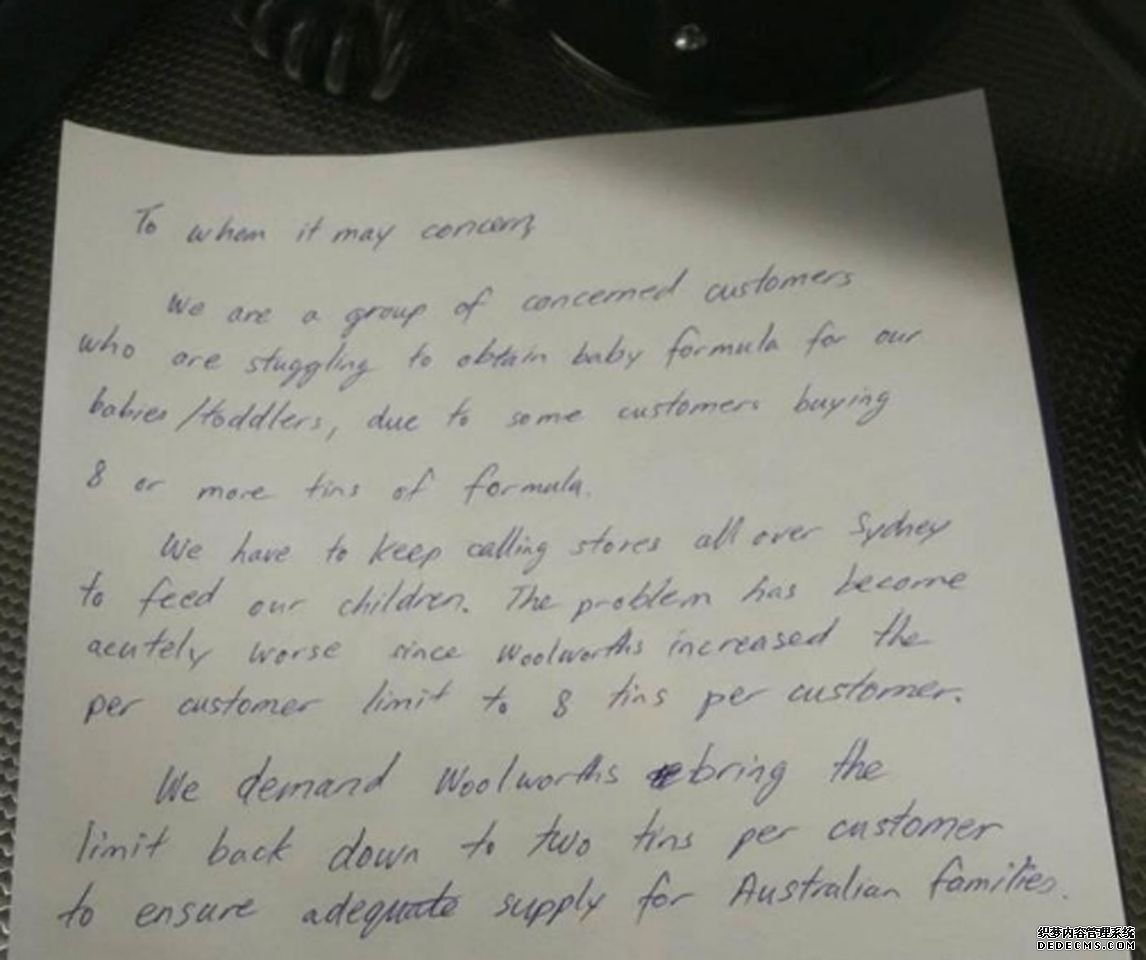 To whom it may concern,
We are a group of concerned customers
who are stuggling to obtain baby formula for our
babies/toddlers, due to some customers buying
8 or more tins of formula.
We have to keep calling stores all over Sydney
to feed our children. The problem has become
acutely worse since Woolworths increased the
per customer limit to 8 tins per customer.
We demand Woolworths bring the
limit back down to two tins per customer
to ensure adequate supply for Australian families.
织梦内容管理系统
DEDECMS.COM